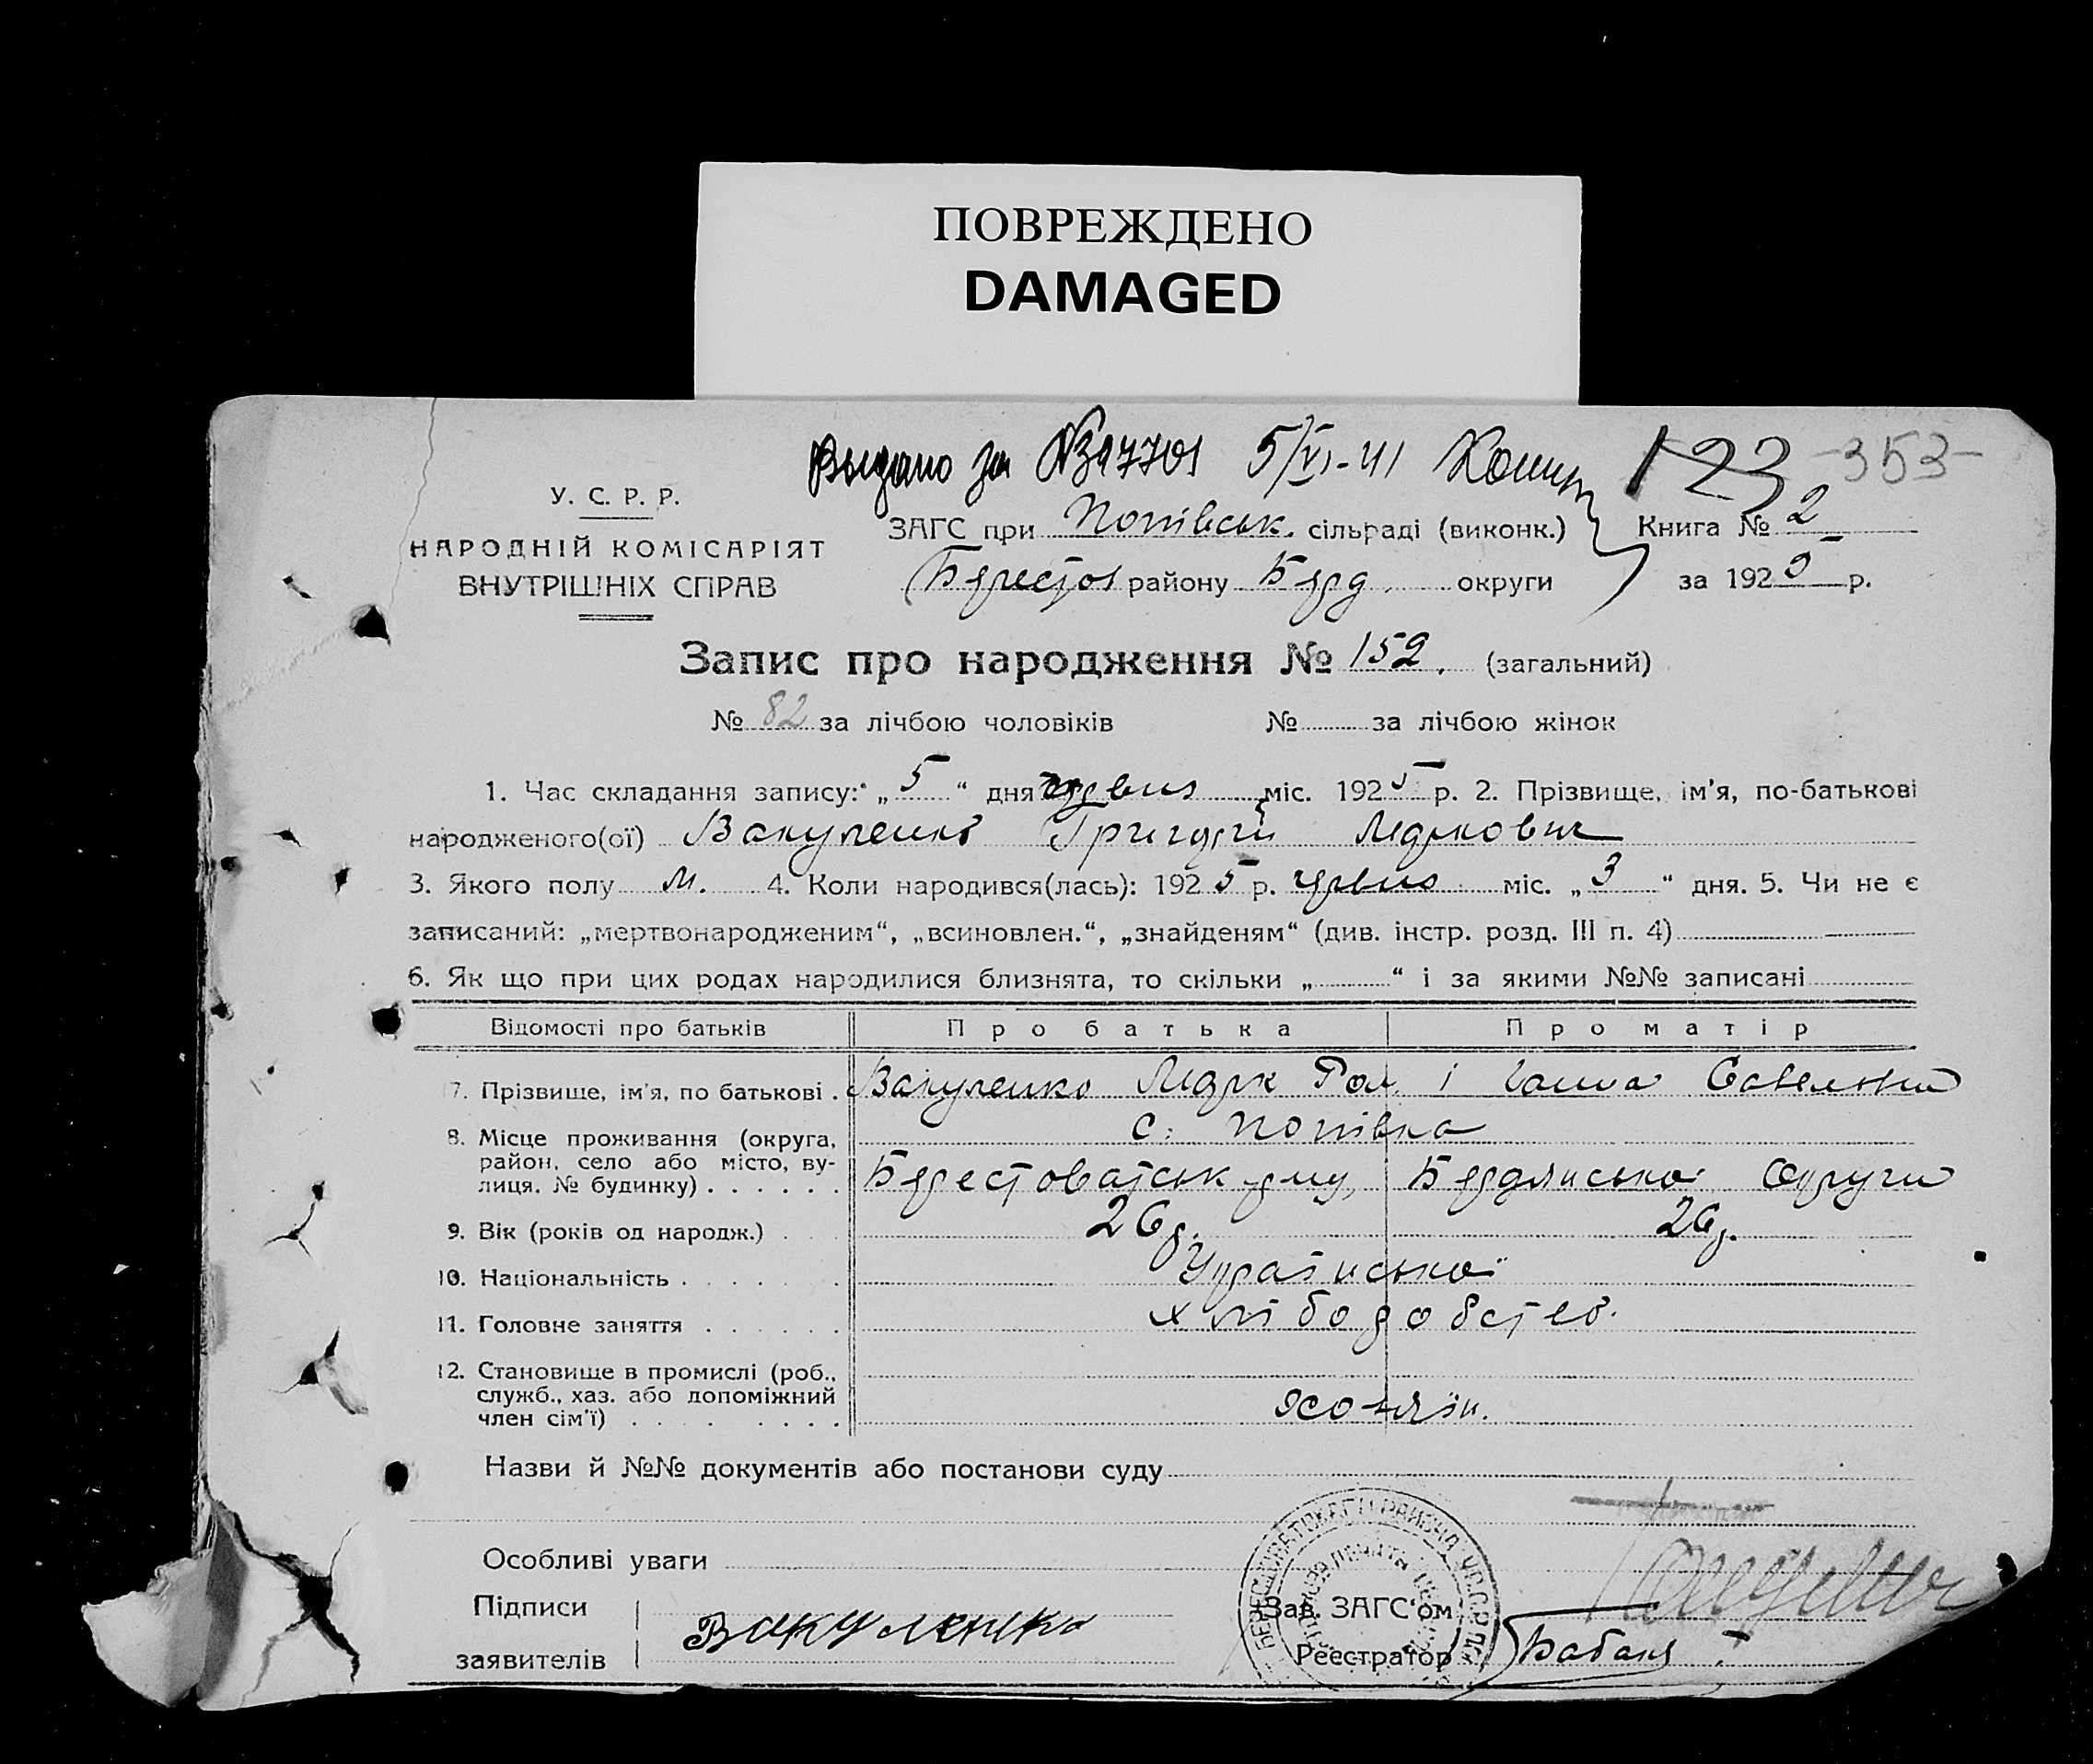 ПОВРЕЖДЕНО
DAMAGED
Выдано за № 5/VI-41
123 -353-
У. С. Р. Р.
НАРОДНІЙ КОМІСАРІЯТ
ВНУТРІШНІХ СПРАВ
ЗАГС при Попівськ. сільраді (виконк.) Книга № 2
Берестов району Берд. округи за 1925 р.
Запис про народження № 152. (загальний)
№ 82 за лічбою чоловіків № за лічбою жінок
1. Час складання запису: „5“ дня червня міс. 1925 р. 2. Прізвище, ім'я, по-батькові
народженого(ої) Вакуленко Григорій Маркович
3. Якого полу м. 4. Коли народився(лась): 1925 р. червня міс. „3“ дня. 5. Чи не є
записаний: „мертвонародженим“, „всиновлен.“, „знайденям“ (див. інстр. розд. III п. 4)
6. Як що при цих родах народилися близнята, то скільки „ “ і за якими №№ записані
Відомості про батьків Про батька Про матір
7. Прізвище, ім'я, по батькові . Вакуленко Марк Ром. і Ганна Савельевна
8. Місце проживання (округа, с. Попівка
район, село або місто, ву-
лиця, № будинку) . . . . . . Берестоватськ р-ну, Бердянської Округи
9. Вік (років од народж.) . . . 26 р. 26 р.
10. Національність . . . . . . Української
11. Головне заняття . . . . . . хліборобство.
12. Становище в промислі (роб.,
служб., хаз. або допоміжний
член сім'ї) . . . . . . . . хозяїн.
Назви й №№ документів або постанови суду
Особливі уваги
Підписи
заявителів
Вакуленко
Зав. ЗАГС'ом
Реєстратор